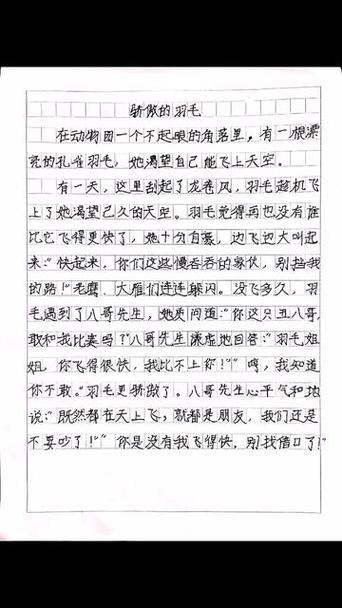 骄傲的羽毛
在动物园一个不起眼的角落里，有一根漂
亮的孔雀羽毛，她渴望自己能飞上天空。
有一天，这里刮起了龙卷风，羽毛趁机飞
上了她渴望已久的天空。羽毛觉得再也没有谁
比它飞得更快了，她十分自豪，边飞边大叫起
来："快起来，你们这些慢吞吞的家伙，别挡我
的路！"老鹰、大雁们连连躲闪。没飞多久，羽
毛遇到了八哥先生，她质问道："你这只丑八哥，
敢和我比赛吗？"八哥先生谦虚地回答："羽毛姐
姐，你飞得很快，我比不上你！""哼，我知道
你不敢。"羽毛更骄傲了。八哥先生心平气和地
说："既然都在天上飞，就都是朋友，我们还是
不要吵了！""你是没有我飞得快，别找借口了！"